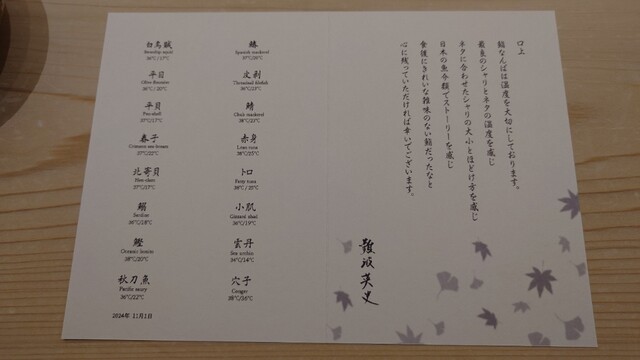 口上
鮨なんばは温度を大切にしております。
最良のシャリとネタの温度を感じ
ネタに合わせたシャリの大小とほどけ方を感じ
日本の魚介類でストーリーを感じ
食後にきれいな雑味のない鮨だったなと
心に残っていただければ幸いでございます。
難波英史
白烏賊
36℃/17℃
平目
Olive flounder
36℃/20℃
平貝
Pen-shell
37℃/17℃
春子
37℃/22℃
北寄貝
37℃/17℃
鰯
Sardine
鰹
Oceanic bonito
38℃/20℃
秋刀魚
Pacific saury
36℃/22℃
鰆
Spanish mackerel
皮剥
鯖
Chub mackerel
赤身
Lean tuna
トロ
Fatty tuna
小肌
Gizzard shad
36℃/19℃
雲丹
Sea urchin
34℃/14℃
穴子
Conger
2024年 11月1日